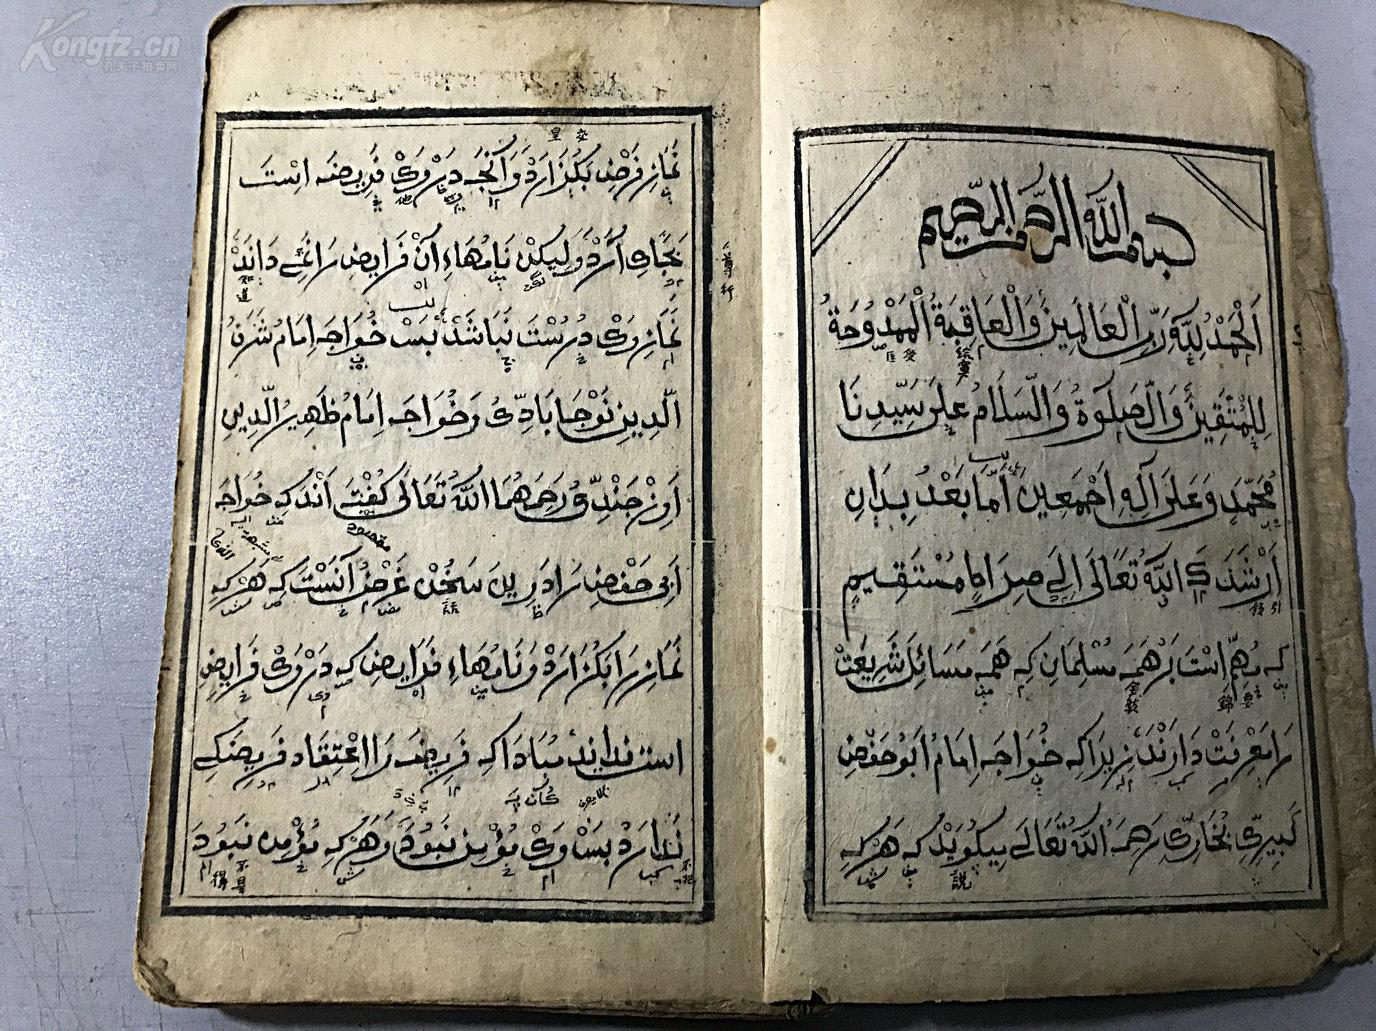 بسم الله الرحمن الرحيم
اَلْحَمْدُ لِلّٰهِ رَبِّ الْعَالَمِينَ وَالْعَاقِبَةُ الْمَمْدُوحَةُ
لِلْمُتَّقِينَ وَالصَّلٰوةُ وَالسَّلَامُ عَلَى سَيِّدِنَا
مُحَمَّدٍ وَعَلَى آلِهِ اَجْمَعِينَ اَمَّا بَعْدُ بِدَانِ
اَرْشَدَكَ اللّٰهُ تَعَالَى اِلَى صِرَاطٍ مُسْتَقِيمٍ
كه مُهِمّ اسْتَ بَرْ هَمَه مُسْلِمَانِ كِه هَمَه مَسَائِلِ شَرِيعَتْ
رَا مَعْرِفَتْ دَارَنْد زِيرَا كِه خُوَاجَه اِمَامُ اَبُو حَفْصِ
كَبِيرِ بُخَارِى رَحِمَهُ اللّٰهُ تَعَالَى مِيكُويَدْ كِه هَرْكِه
說
نَمَازِ فَرْضِ بَكُزَارَدْ وَآنْجَه دَرْ وَىْ فَرِيضَه اسْت
بَجَاى آرَدْ وَلِيكِنْ نَامْهَاءِ آنْ فَرَايِض رَا نَمِى دَانَدْ
نَمَازِ وَىْ دُرُسْتَ نَبَاشَدْ بَسْ خُوَاجَه اِمَامُ شَرَفُ
الدِّينِ نَوْجَابَادِىُّ وَخُوَاجَه اِمَامُ ظَهِيرُ الدِّينِ
رَحِمَهُمَا اللّٰهُ تَعَالَى كُفْتَه اَنْد كِه خُوَاجَه
اَبِى حَفْصِ رَا دَرِينَ سَخُنْ غَرَضُ آنَسْت كِه هَرْكِه
نَمَازِ رَا بَكُزَارَدْ وَنَامْهَاءِ فَرَايِض كِه دَرْ وَىْ فَرَايِضِ
است نداند مبادا كه فَرِيضَه رَا اِعْتِقَادِ فَرِيضَكِى
نَدَارَدْ بَسْ وَىْ مُؤْمِنْ نَبُودَ وَهَرْكِه مُؤْمِنْ نَبُودَ
尊行
Kongfz.cn
孔夫子拍卖网